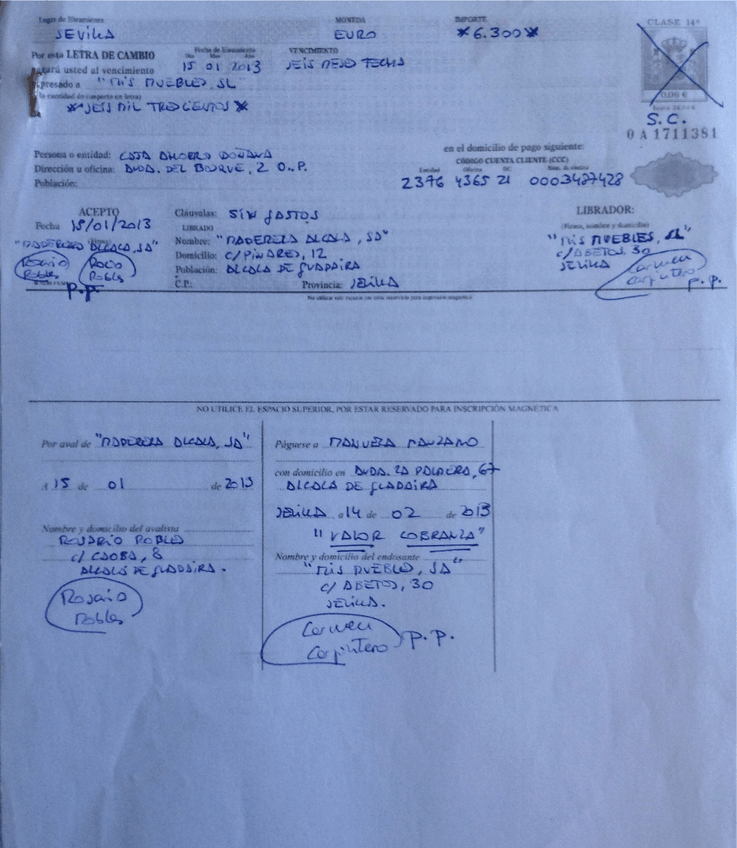 Lugar de libramiento MONEDA IMPORTE
SEVILLA EURO *6.300*
CLASE 14ª
Por esta LETRA DE CAMBIO Fecha de libramiento VENCIMIENTO
pagará usted al vencimiento 15 01 2013 SEIS MESES FECHA
expresado a "MIS MUEBLES, SL"
la cantidad de (importe en letra)
*SEIS MIL TRESCIENTOS*
0,06 €
S.C.
0 A 1711381
en el domicilio de pago siguiente:
Persona o entidad: CAJA AHORRO DOÑANA
CÓDIGO CUENTA CLIENTE (CCC)
Dirección u oficina: AVDA. DEL BOSQUE, 2 O.P.
Entidad Oficina DC Núm. de cuenta
Población:
2376 4365 21 0003487428
ACEPTO
Cláusulas: SIN GASTOS
LIBRADOR:
Fecha 15/01/2013
LIBRADO
(Firma, nombre y domicilio)
"MADERERA ALCALA, SA"
Nombre: "MADERERA ALCALA, SA"
"MIS MUEBLES, SL"
Rosario Robles
Rocio Robles
p.p.
Domicilio: C/PINARES, 12
C/ABETOS, 30
Población: ALCALA DE GUADAIRA
SEVILLA
C.P.: Provincia: SEVILLA
Carmen
Carpintero
p.p.
No utilizar este espacio por estar reservado para inscripción magnética
NO UTILICE EL ESPACIO SUPERIOR, POR ESTAR RESERVADO PARA INSCRIPCIÓN MAGNÉTICA
Por aval de "MADERERA ALCALA, SA"
A 15 de 01 de 2013
Nombre y domicilio del avalista
ROSARIO ROBLES
C/ CAOBA, 8
ALCALA DE GUADAIRA.
Rosario
Robles
Páguese a MANUELA MANZANO
con domicilio en AVDA. LA PALMERA, 67
ALCALA DE GUADAIRA
SEVILLA a 14 de 02 de 2013
"VALOR COBRANZA"
Nombre y domicilio del endosante
"MIS MUEBLES, SA"
C/ ABETOS, 30
SEVILLA.
Carmen
Carpintero p.p.